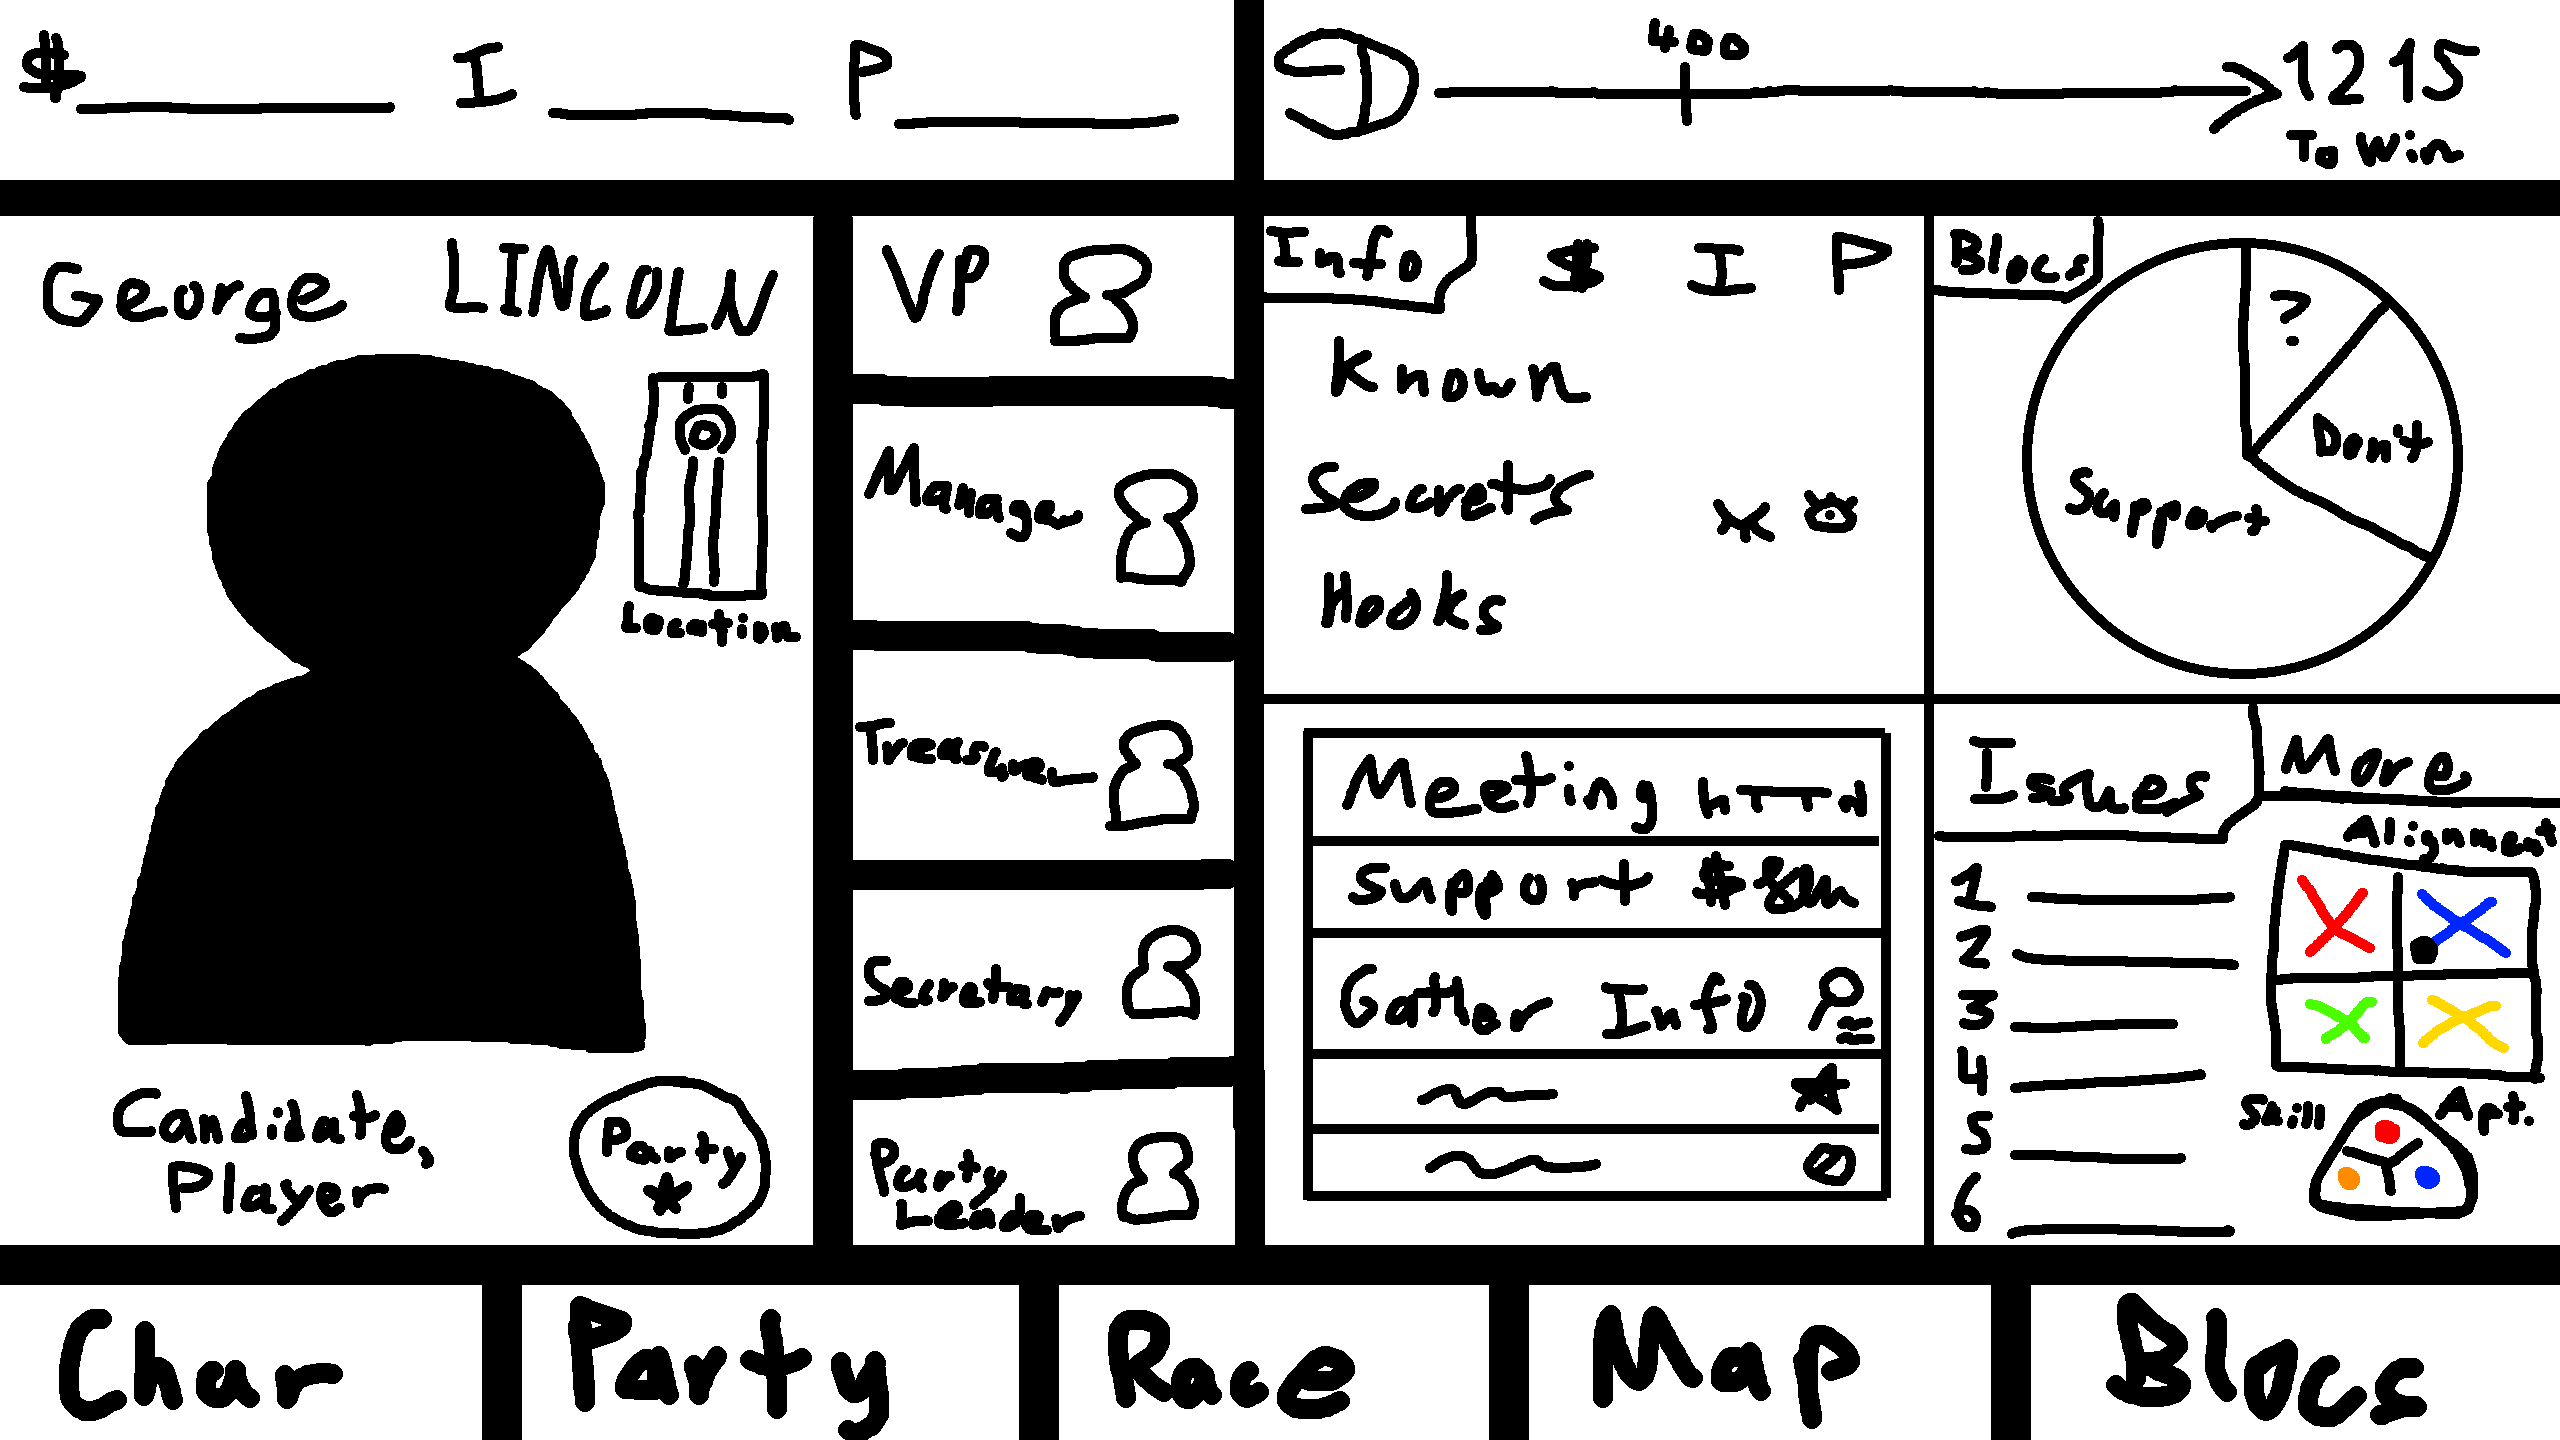 $ I P
400
1215
To Win
George LINCOLN
Location
Candidate,
Player
Party
VP
Manager
Treasurer
Secretary
Party
Leader
Info $ I P
Known
Secrets
Hooks
Blocs
?
Don't
Support
Meeting
Support $
Gather Info
Issues More
1
2
3
4
5
6
Alignment
Skill Apt.
Char Party Race Map Blocs